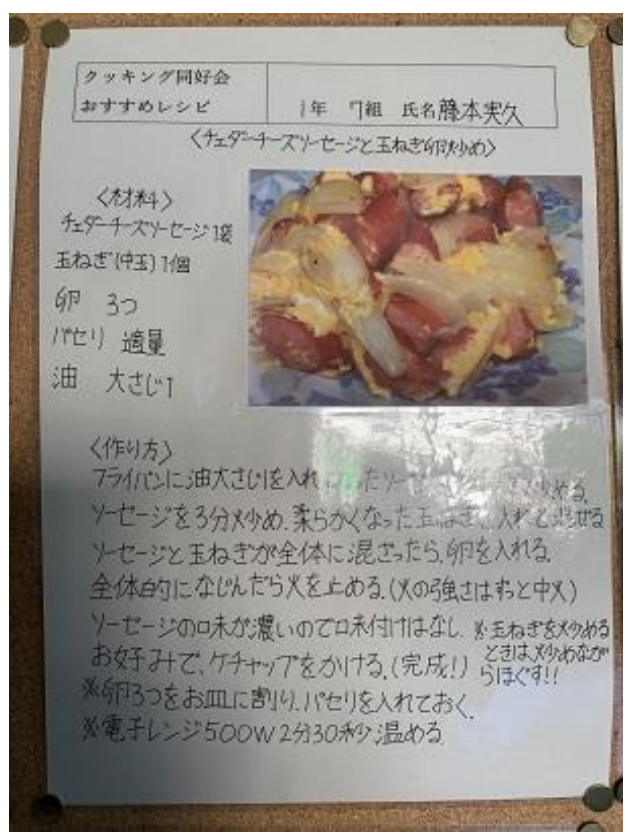 クッキング同好会
おすすめレシピ
1年 7組 氏名 藤本実久
〈チェダーチーズソーセージと玉ねぎ卵炒め〉
〈材料〉
チェダーチーズソーセージ1袋
玉ねぎ(中玉)1個
卵 3つ
パセリ 適量
油 大さじ1
〈作り方〉
フライパンに油大さじ1を入れ たソーセ 炒める。
ソーセージを3分炒め、柔らかくなった玉ねぎを入れて混ぜる
ソーセージと玉ねぎが全体に混ざったら、卵を入れる。
全体的になじんだら火を止める。(火の強さはずっと中火)
ソーセージの味が濃いので味付けはなし。
お好みで、ケチャップをかける。(完成!)
※玉ねぎを炒める
ときは、炒めなが
らほぐす!!
※卵3つをお皿に割り、パセリを入れておく。
※電子レンジ500W2分30秒温める。